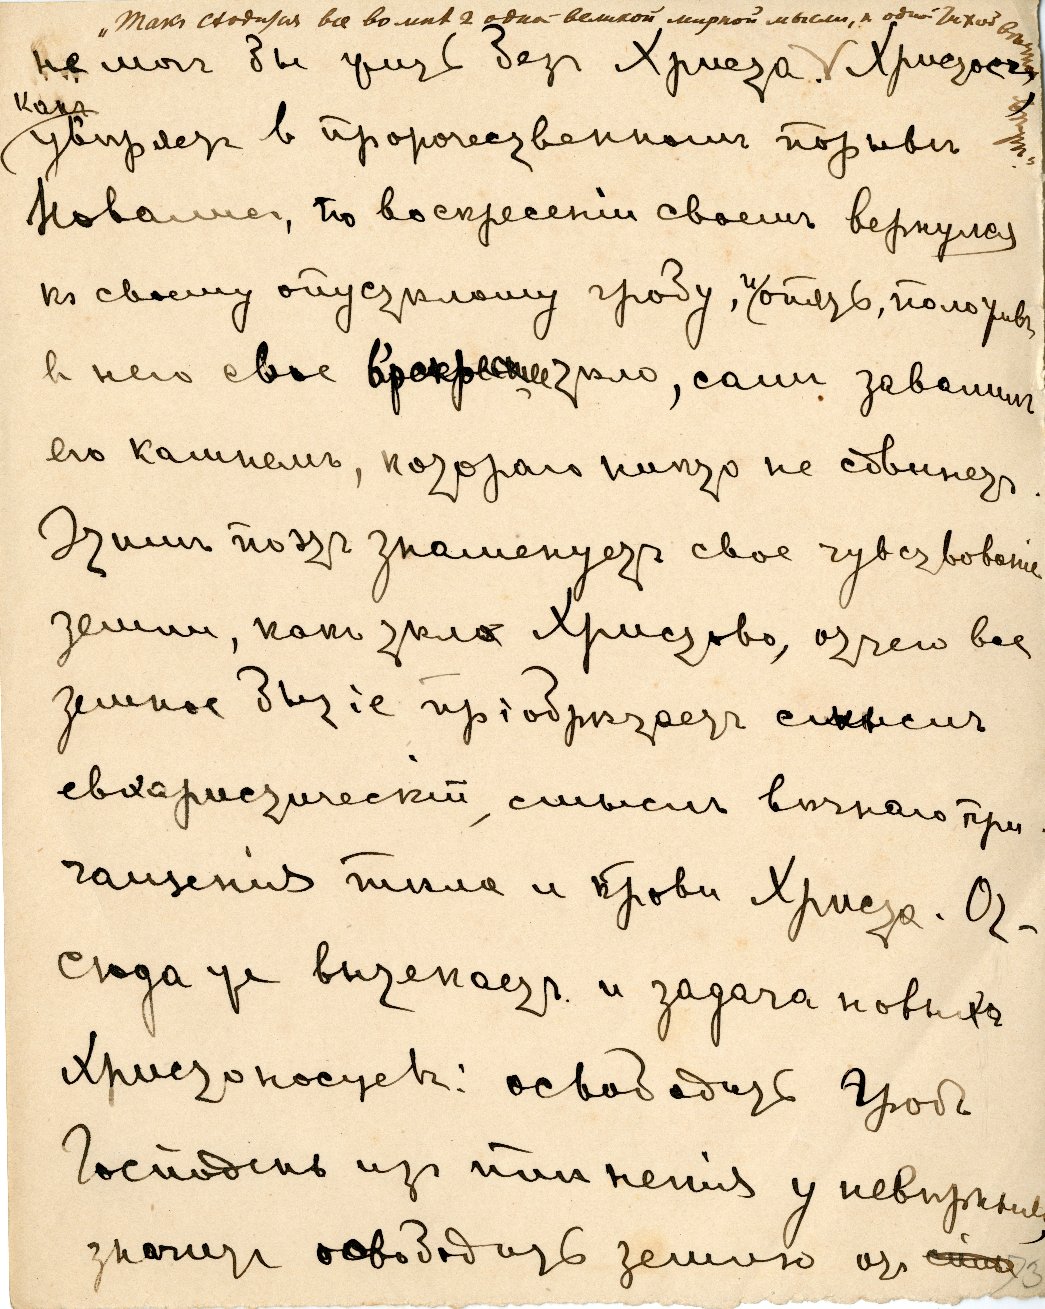 „Такъ сходился все во мнѣ въ одной великой мирной мысли, въ одной тихой
не могъ бы жить безъ Христа. Христосъ,
какъ
увѣряетъ в пророчественномъ порывѣ
Новалисъ, по воскресеніи своемъ вернулся
къ своему опустѣлому гробу, и опять, положивъ
в него свое тѣло, самъ завалилъ
его камнемъ, котораго никто не сдвинетъ.
Этимъ поэтъ знаменуетъ свое чувствованіе
земли, какъ тѣла Христова, отчего все
земное бытіе пріобрѣтаетъ смыслъ
евхаристическій, смыслъ вѣчнаго при-
чащенія тѣла и крови Христа. От-
сюда же вытекаетъ и задача новыхъ
Христоносцевъ: освободить Гробъ
Господень изъ плѣненія у невѣрныхъ,
значитъ освободить землю отъ
73